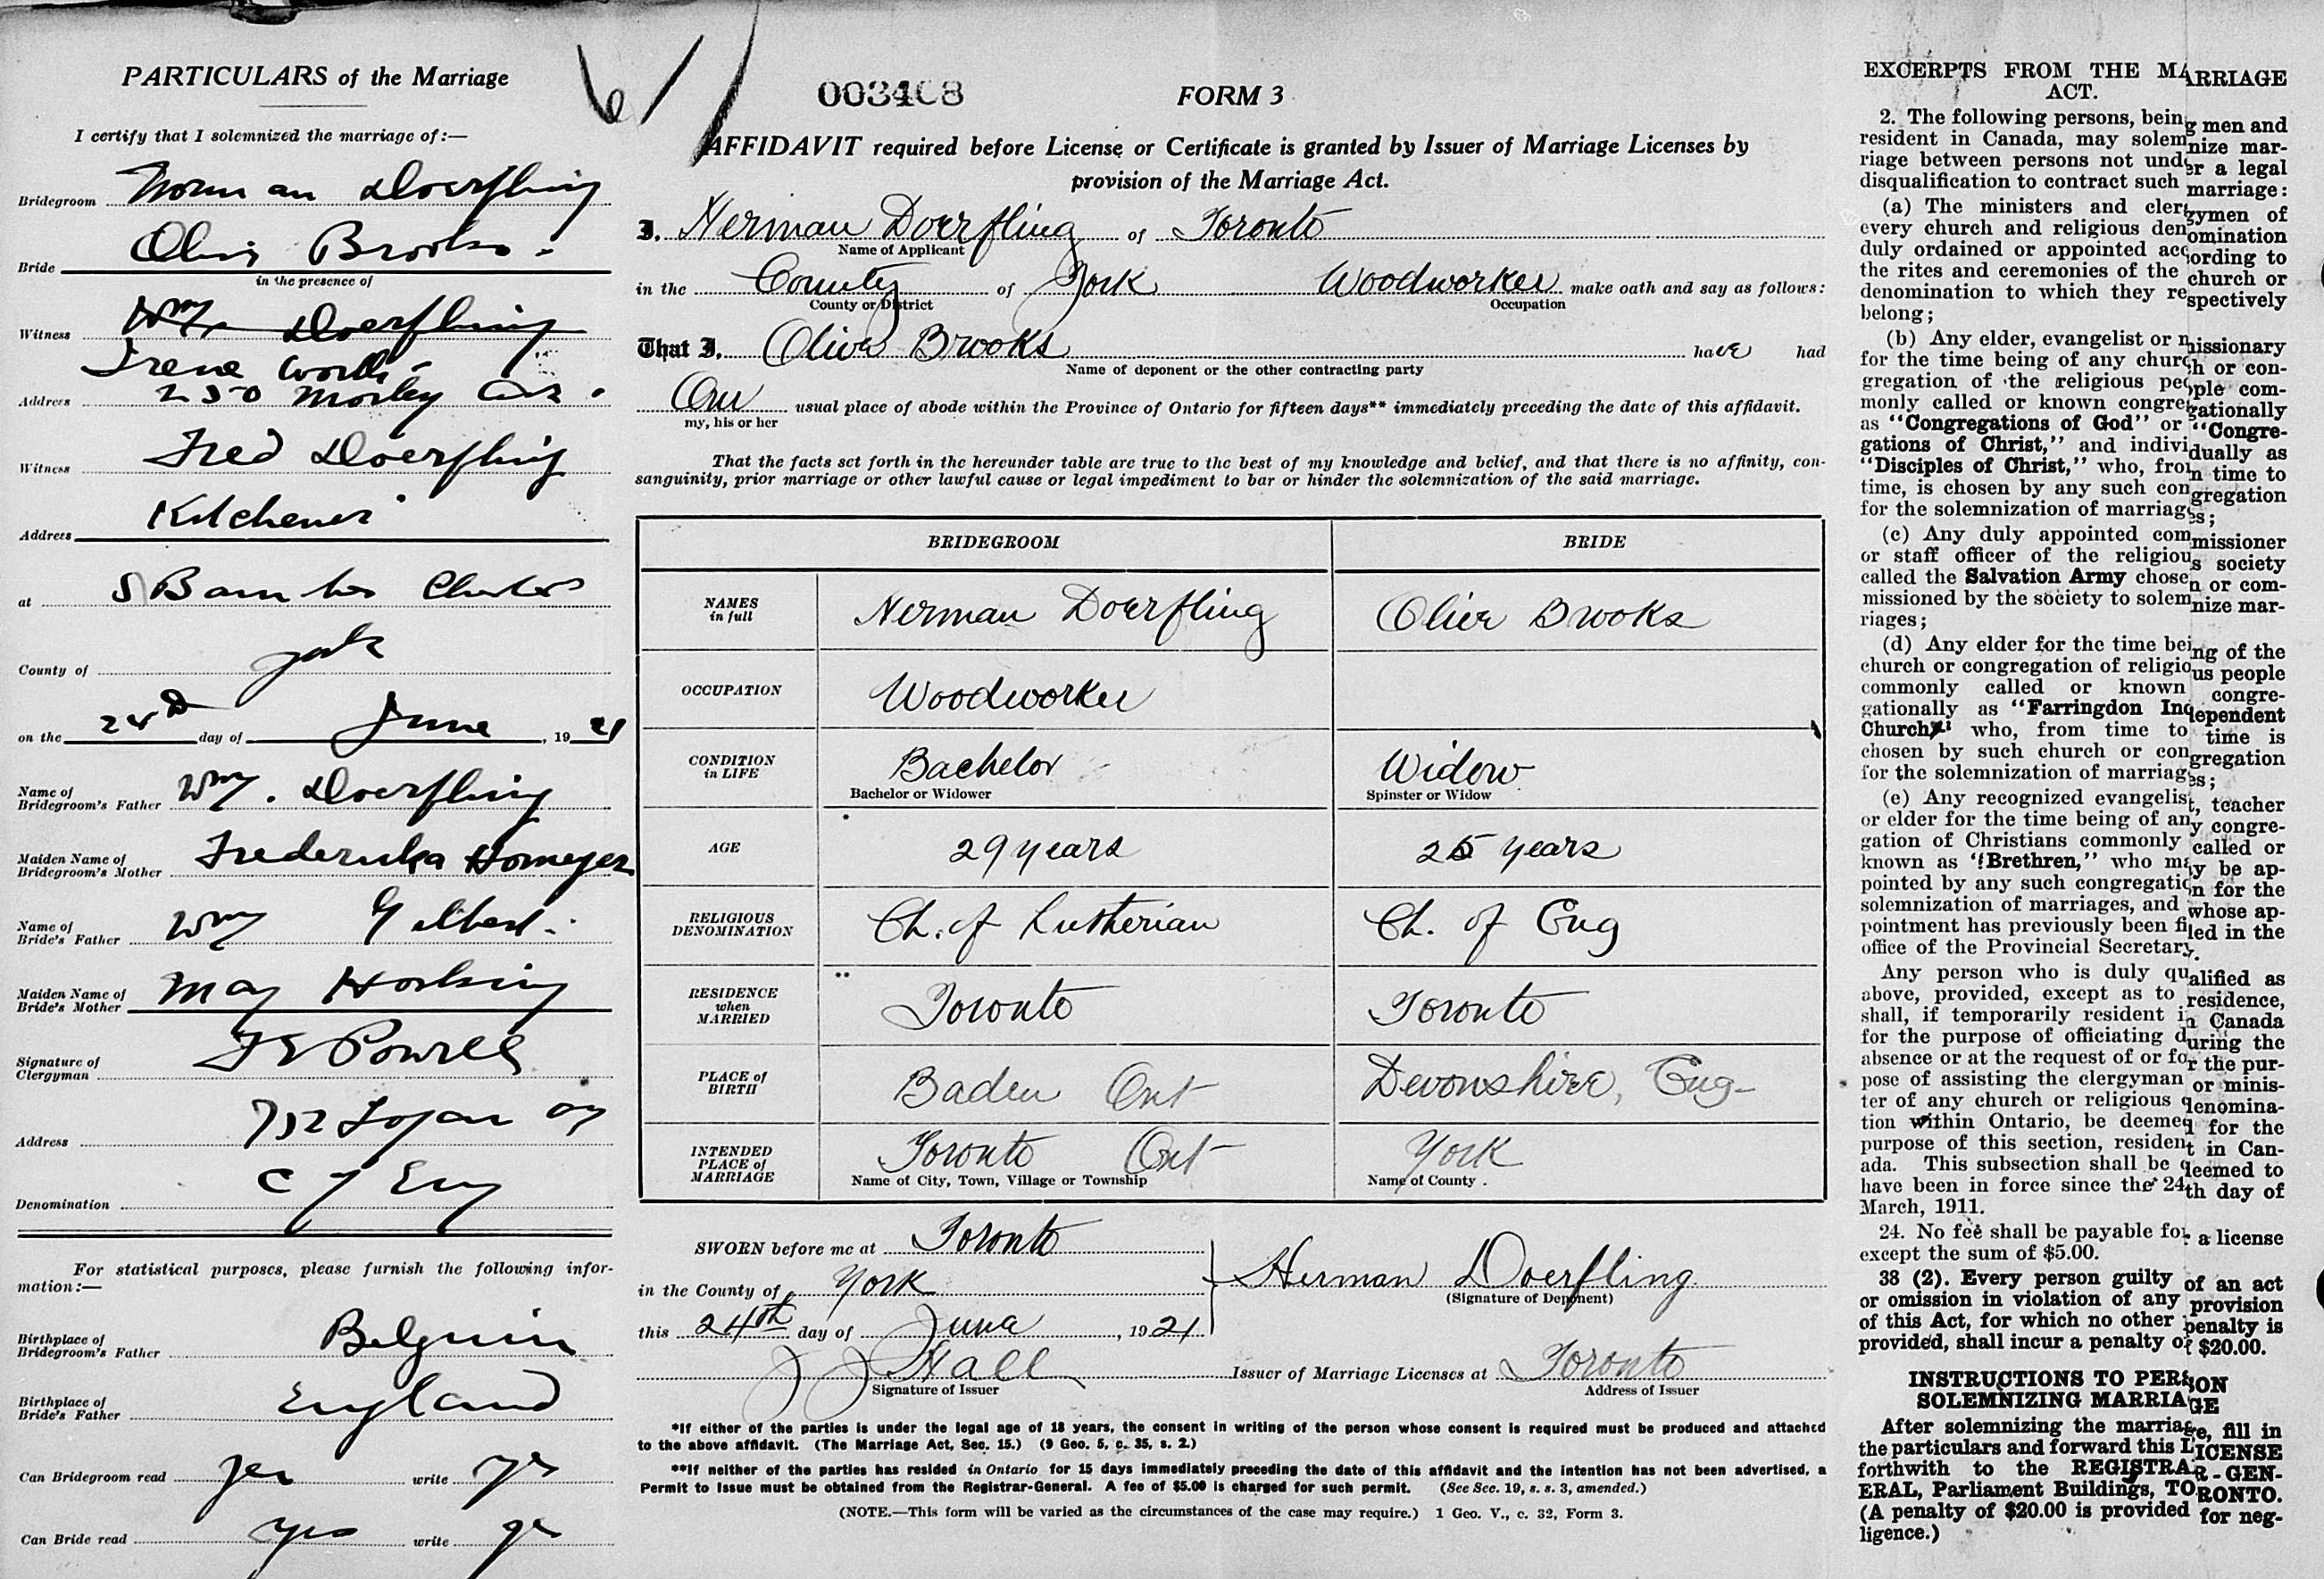 PARTICULARS of the Marriage
I certify that I solemnized the marriage of:—
Bridegroom Norman Doerfling
Bride Olive Brooks.
in the presence of
Witness Wm Doerfling
Irene
Address 250 Morley Ave.
Witness Fred Doerfling
Address Kitchener
at S Barnabas Chester
County of York
on the 24th day of June, 1921
Name of
Bridegroom's Father Wm. Doerfling
Maiden Name of
Bridegroom's Mother Frederika Homeyer
Name of
Bride's Father Wm Gilbert.
Maiden Name of
Bride's Mother May Hosking
Signature of
Clergyman F E Powell
Address 732 Logan av
Denomination C of Eng
For statistical purposes, please furnish the following infor-
mation:—
Birthplace of
Bridegroom's Father Belguim
Birthplace of
Bride's Father England
Can Bridegroom read yes write yes
Can Bride read yes write yes
003408
FORM 3
AFFIDAVIT required before License or Certificate is granted by Issuer of Marriage Licenses by
provision of the Marriage Act.
I, Herman Doerfling of Toronto
Name of Applicant
in the County of York Woodworker make oath and say as follows:
County or District Occupation
That I, Olive Brooks have had
Name of deponent or the other contracting party
Our usual place of abode within the Province of Ontario for fifteen days** immediately preceding the date of this affidavit.
my, his or her
That the facts set forth in the hereunder table are true to the best of my knowledge and belief, and that there is no affinity, con-
sanguinity, prior marriage or other lawful cause or legal impediment to bar or hinder the solemnization of the said marriage.
BRIDEGROOM BRIDE
NAMES
in full Herman Doerfling Olive Brooks
OCCUPATION Woodworker
CONDITION
in LIFE Bachelor Widow
Bachelor or Widower Spinster or Widow
AGE 29 years 25 years
RELIGIOUS
DENOMINATION Ch. of Lutherian Ch. of Eng
RESIDENCE
when
MARRIED Toronto Toronto
PLACE of
BIRTH Baden Ont Devonshire, Eng
INTENDED
PLACE of
MARRIAGE Toronto Ont York
Name of City, Town, Village or Township Name of County
SWORN before me at Toronto
in the County of York
this 24th day of June, 1921
Herman Doerfling
(Signature of Deponent)
J J Hall Issuer of Marriage Licenses at Toronto
Signature of Issuer Address of Issuer
*If either of the parties is under the legal age of 18 years, the consent in writing of the person whose consent is required must be produced and attached
to the above affidavit. (The Marriage Act, Sec. 15.) (9 Geo. 5, c. 35, s. 2.)
**If neither of the parties has resided in Ontario for 15 days immediately preceding the date of this affidavit and the intention has not been advertised, a
Permit to Issue must be obtained from the Registrar-General. A fee of $5.00 is charged for such permit. (See Sec. 19, s. s. 3, amended.)
(NOTE.—This form will be varied as the circumstances of the case may require.) 1 Geo. V., c. 32, Form 3.
EXCERPTS FROM THE MARRIAGE
ACT.
2. The following persons, being men and
resident in Canada, may solemnize mar-
riage between persons not under a legal
disqualification to contract such marriage:
(a) The ministers and clergymen of
every church and religious denomination
duly ordained or appointed according to
the rites and ceremonies of the church or
denomination to which they respectively
belong;
(b) Any elder, evangelist or missionary
for the time being of any church or con-
gregation of the religious people com-
monly called or known congregationally
as "Congregations of God" or "Congre-
gations of Christ," and individually as
"Disciples of Christ," who, from time to
time, is chosen by any such congregation
for the solemnization of marriages;
(c) Any duly appointed commissioner
or staff officer of the religious society
called the Salvation Army chosen or com-
missioned by the society to solemnize mar-
riages;
(d) Any elder for the time being of the
church or congregation of religious people
commonly called or known congre-
gationally as "Farringdon Independent
Church," who, from time to time is
chosen by such church or congregation
for the solemnization of marriages;
(e) Any recognized evangelist, teacher
or elder for the time being of any congre-
gation of Christians commonly called or
known as "Brethren," who may be ap-
pointed by any such congregation for the
solemnization of marriages, and whose ap-
pointment has previously been filed in the
office of the Provincial Secretary.
Any person who is duly qualified as
above, provided, except as to residence,
shall, if temporarily resident in Canada
for the purpose of officiating during the
absence or at the request of or for the pur-
pose of assisting the clergyman or minis-
ter of any church or religious denomina-
tion within Ontario, be deemed for the
purpose of this section, resident in Can-
ada. This subsection shall be deemed to
have been in force since the 24th day of
March, 1911.
24. No fee shall be payable for a license
except the sum of $5.00.
38 (2). Every person guilty of an act
or omission in violation of any provision
of this Act, for which no other penalty is
provided, shall incur a penalty of $20.00.
INSTRUCTIONS TO PERSON
SOLEMNIZING MARRIAGE
After solemnizing the marriage, fill in
the particulars and forward this LICENSE
forthwith to the REGISTRAR-GEN-
ERAL, Parliament Buildings, TORONTO.
(A penalty of $20.00 is provided for neg-
ligence.)